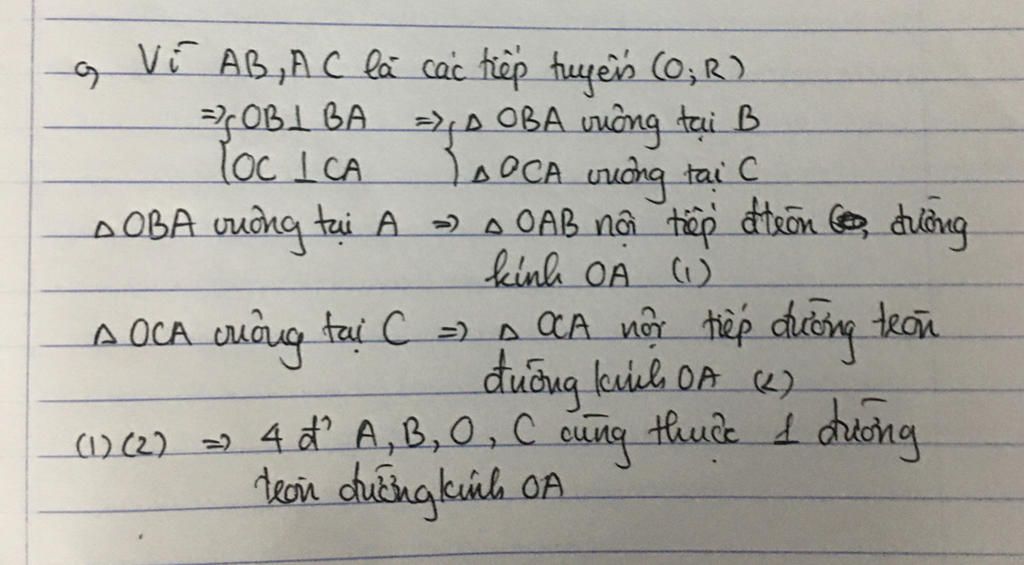 a, Vì AB, AC là các tiếp tuyến (O; R)
=> { OB ⊥ BA => { Δ OBA vuông tại B
{ OC ⊥ CA } Δ OCA vuông tại C
Δ OBA vuông tại A => Δ OAB nội tiếp đtròn , đường
kính OA (1)
Δ OCA vuông tại C => Δ OCA nội tiếp đường tròn
đường kính OA (2)
(1)(2) => 4 đ' A, B, O, C cùng thuộc 1 đường
tròn đường kính OA